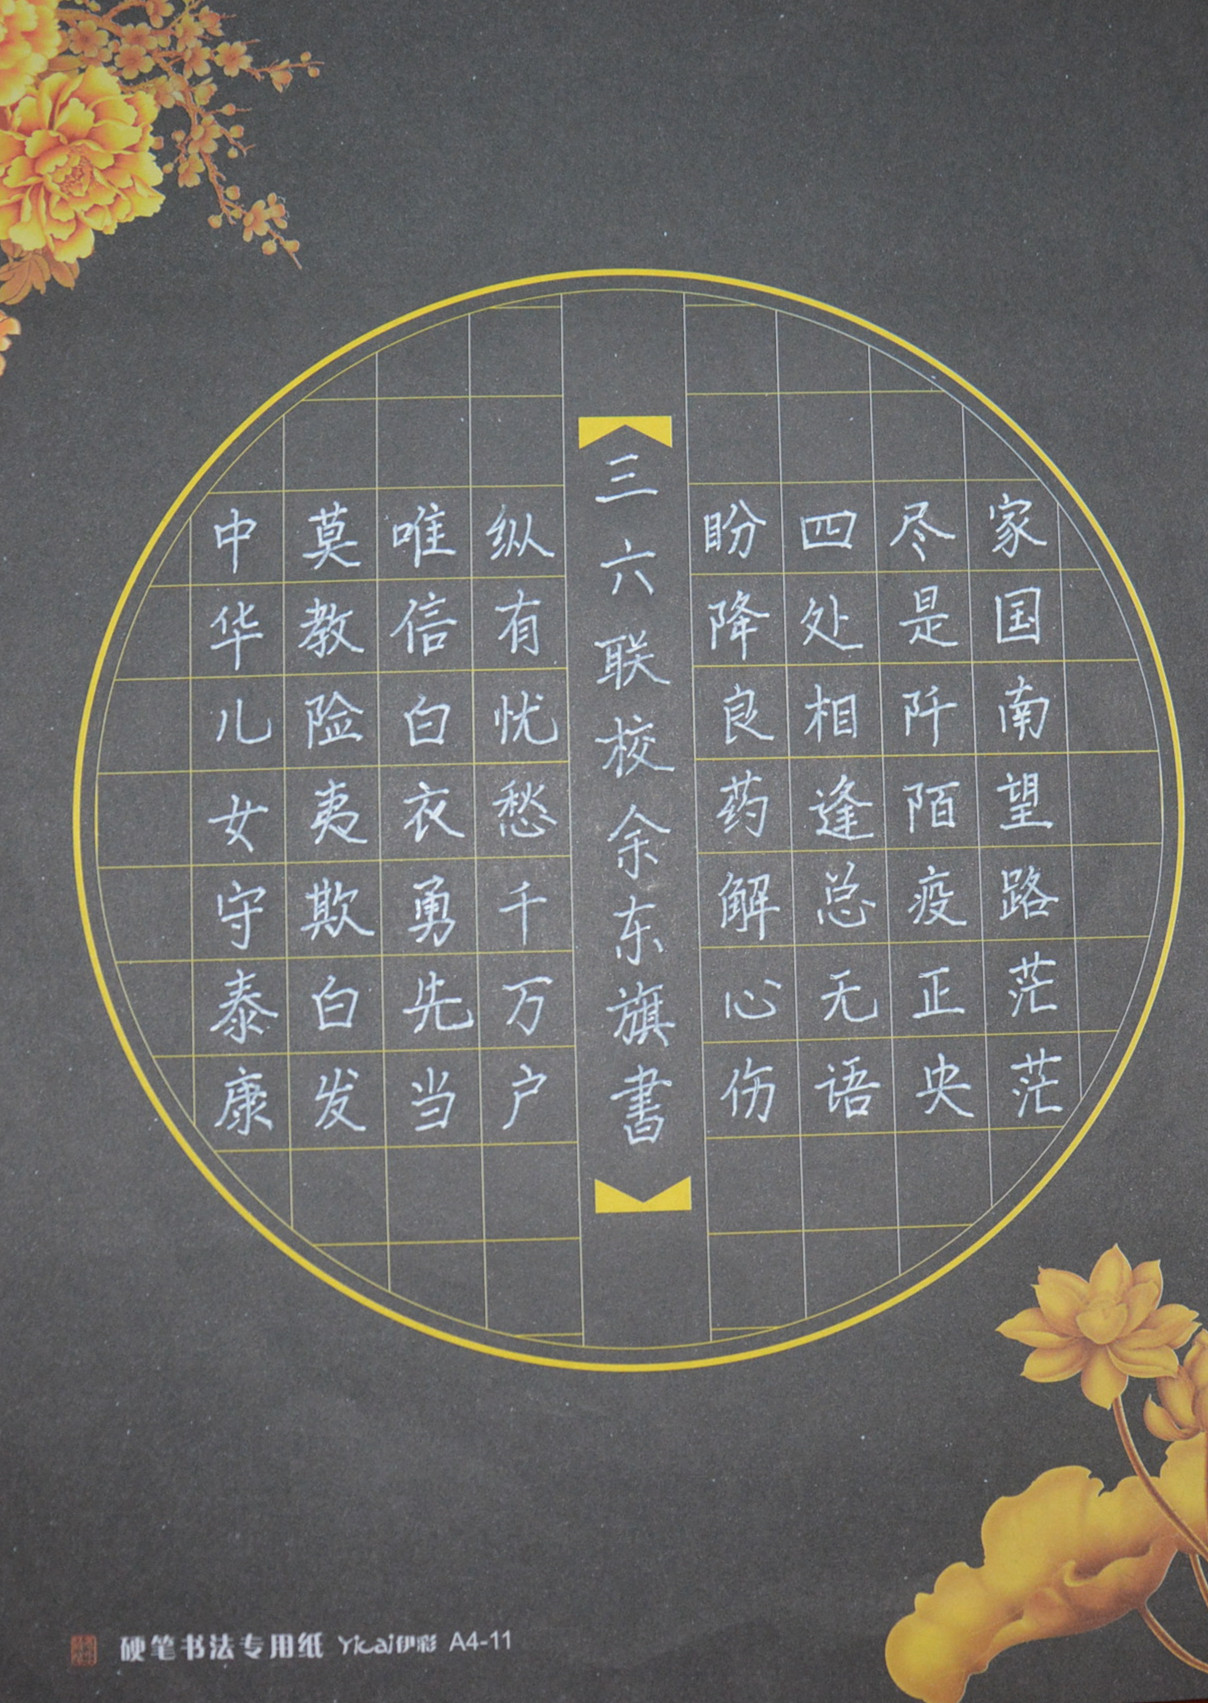 家国南望路茫茫
尽是阡陌疫正央
四处相逢总无语
盼降良药解心伤
三六联校余东旗書
纵有忧愁千万户
唯信白衣勇先当
莫教险夷欺白发
中华儿女守泰康
硬笔书法专用纸 Yicai伊彩 A4-11